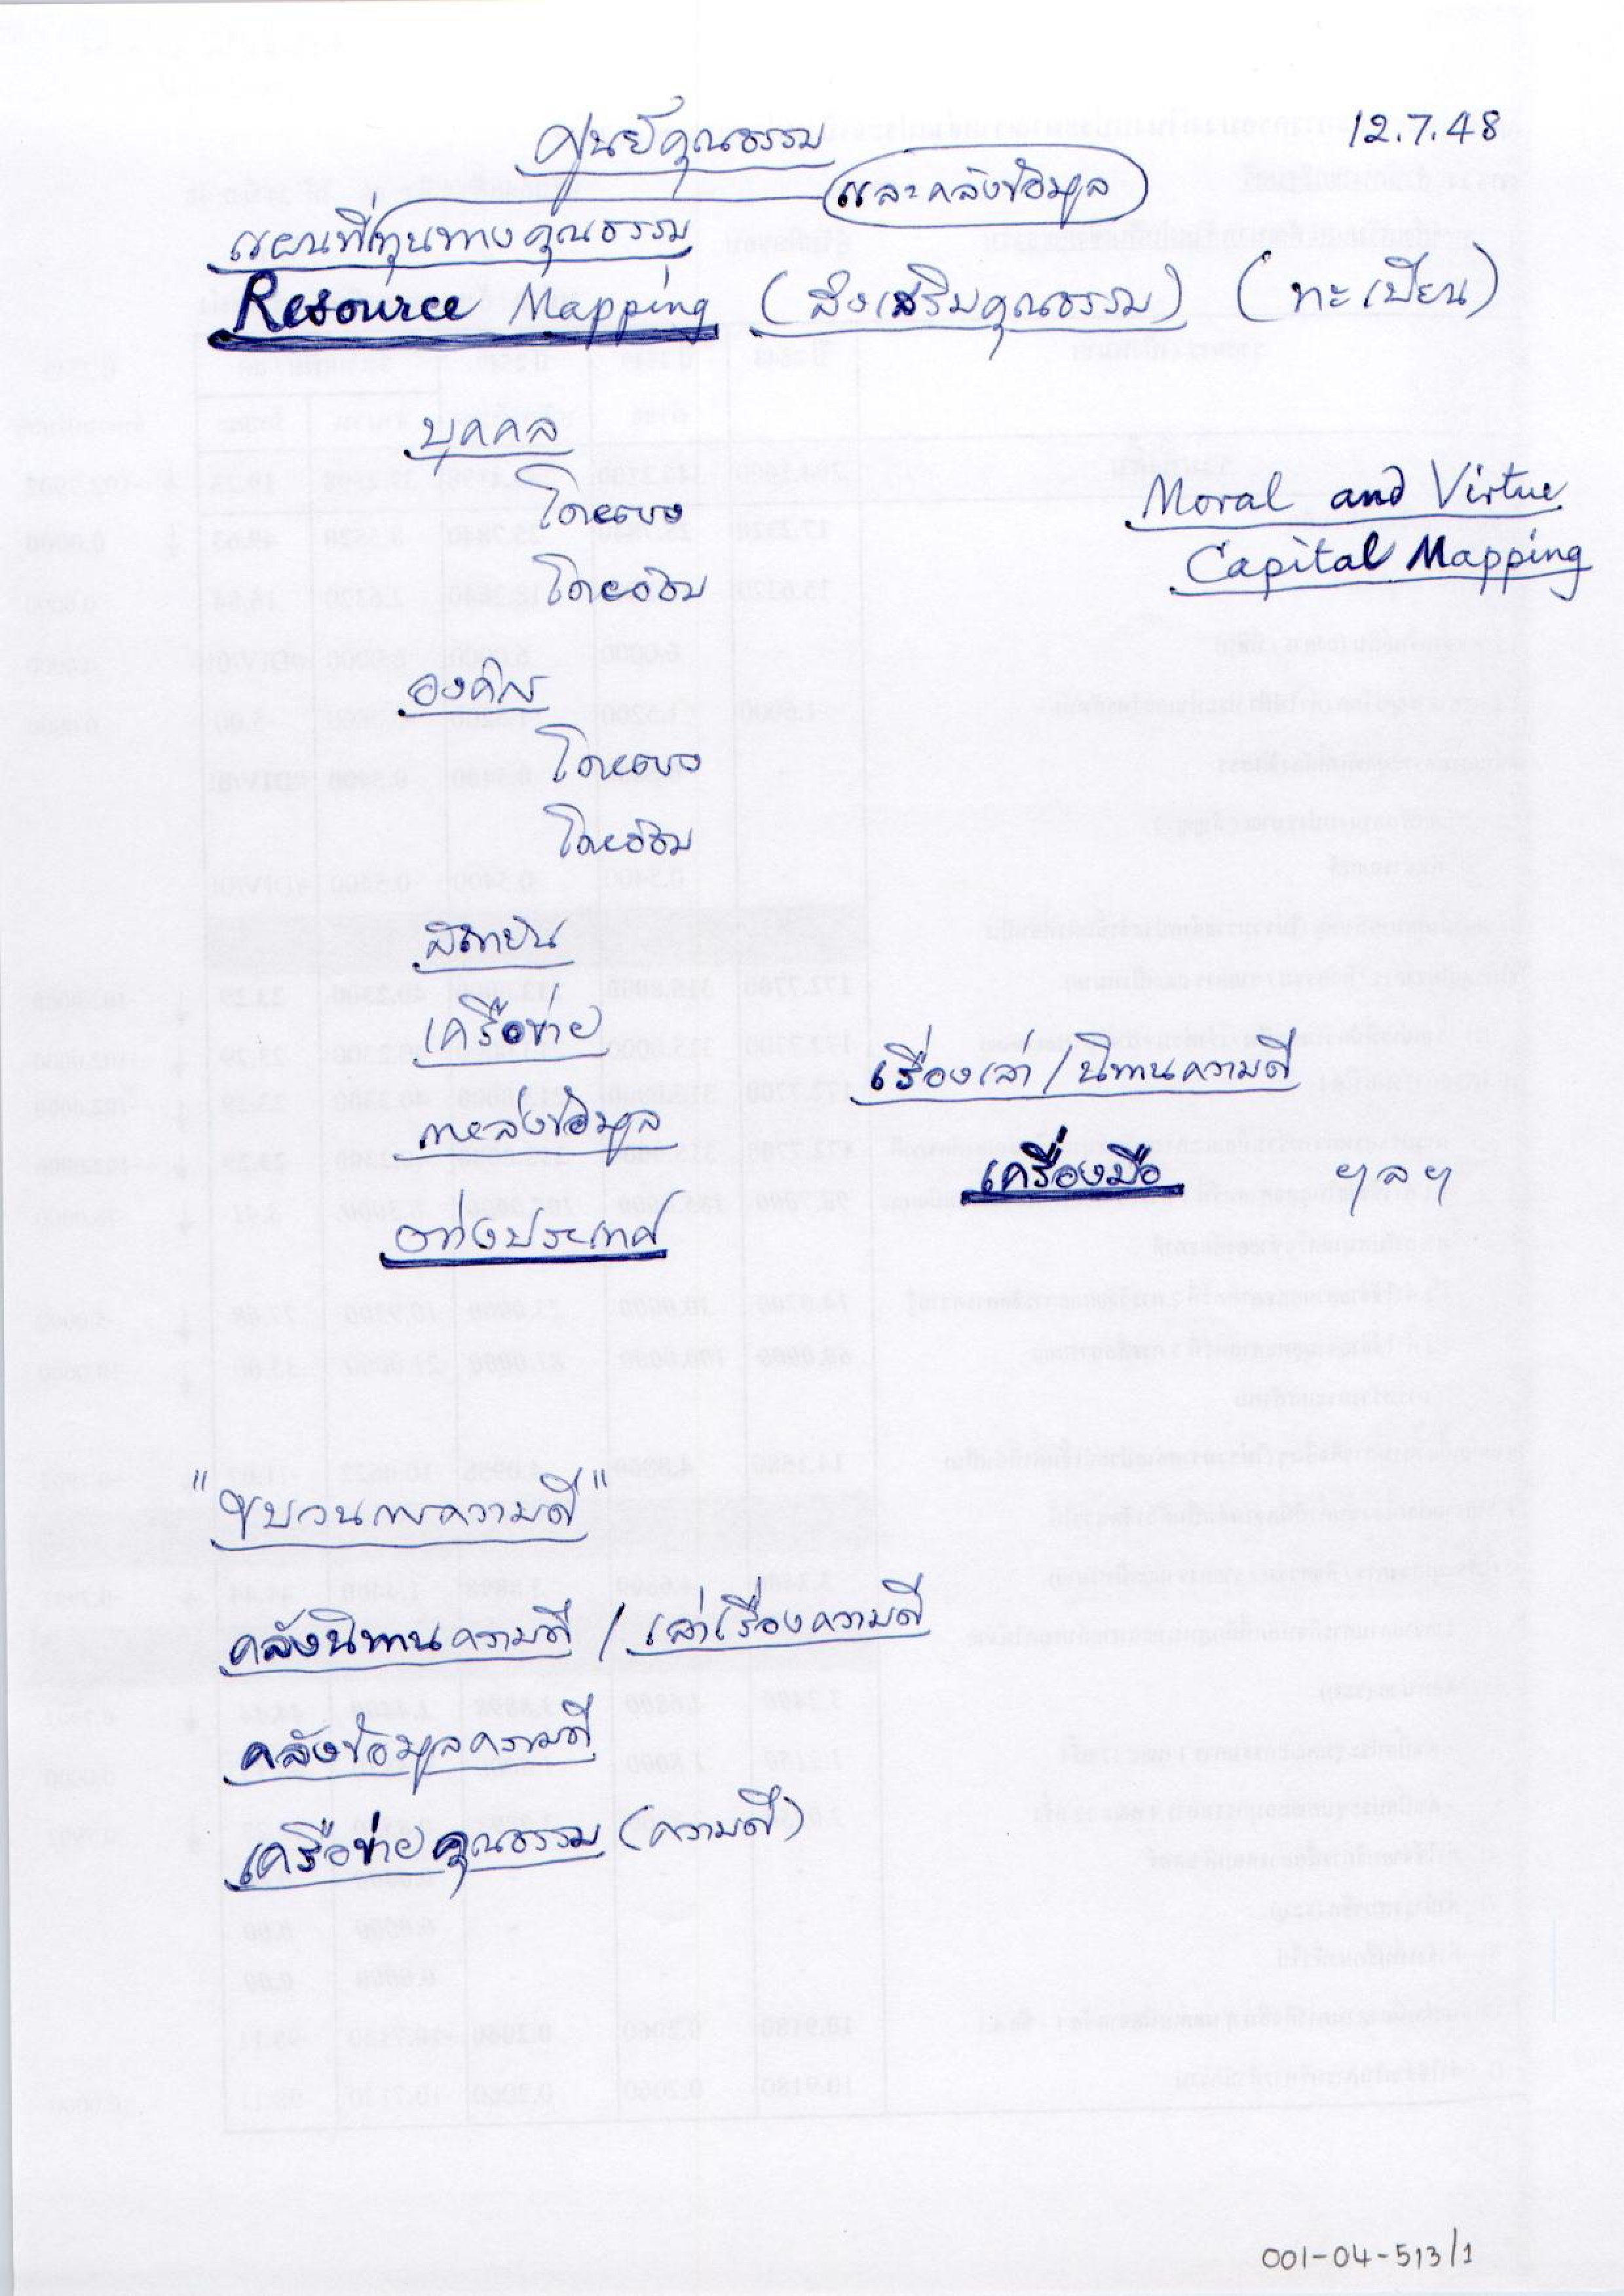 12.7.48
ศูนย์คุณธรรม
และคลังข้อมูล
แผนที่ทุนทางคุณธรรม
Resource Mapping (ส่งเสริมคุณธรรม) (ทะเบียน)
บุคคล
โดยตรง
โดยอ้อม
Moral and Virtue
Capital Mapping
องค์กร
โดยตรง
โดยอ้อม
สถาบัน
เครือข่าย
เรื่องเล่า / นิทานความดี
แหล่งข้อมูล
เครื่องมือ ฯลฯ
ต่างประเทศ
"ขบวนการความดี"
คลังนิทานความดี / เล่าเรื่องความดี
คลังข้อมูลความดี
เครือข่ายคุณธรรม (ความดี)
001-04-513/1